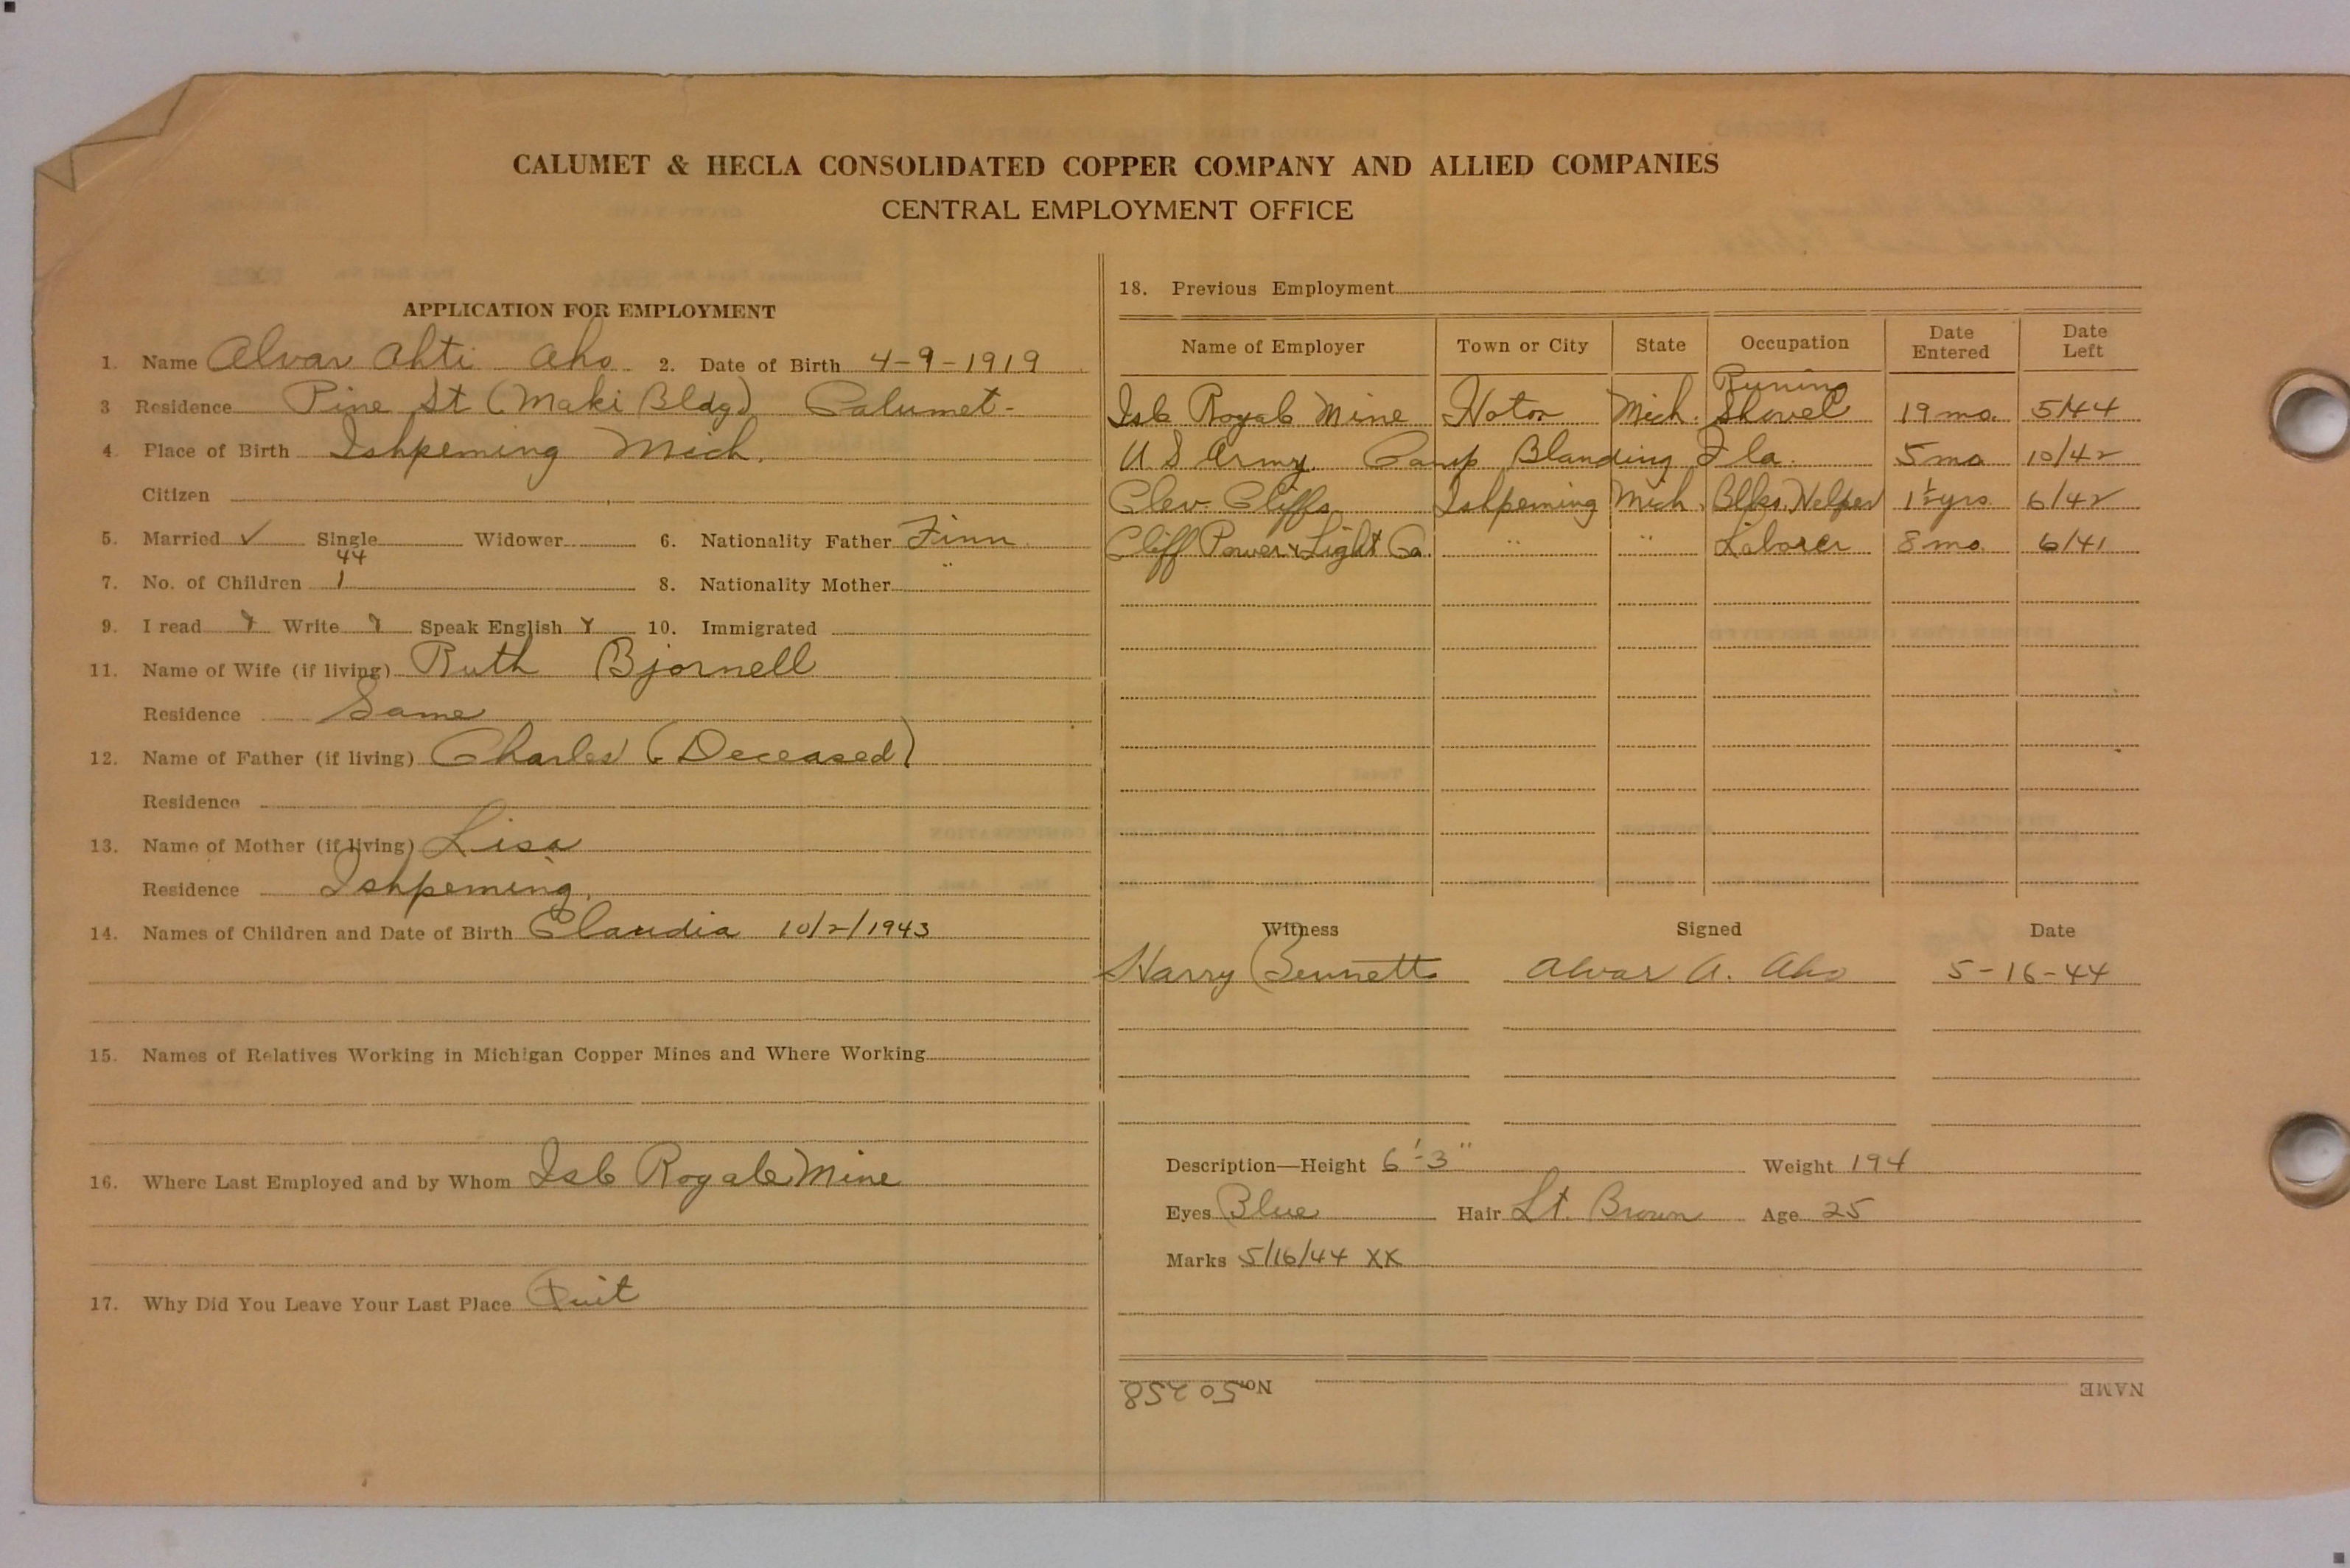 CALUMET & HECLA CONSOLIDATED COPPER COMPANY AND ALLIED COMPANIES
CENTRAL EMPLOYMENT OFFICE
APPLICATION FOR EMPLOYMENT
1. Name Alvar Ahti Aho 2. Date of Birth 4-9-1919
3 Residence Pine St (Maki Bldg) Calumet-
4. Place of Birth Ishpeming Mich.
Citizen
5. Married ✓ Single Widower 6. Nationality Father Finn
44
7. No. of Children 1 8. Nationality Mother "
9. I read Y Write Y Speak English Y 10. Immigrated
11. Name of Wife (if living) Ruth Bjornell
Residence Same
12. Name of Father (if living) Charles (Deceased)
Residence
13. Name of Mother (if living) Lisa
Residence Ishpeming.
14. Names of Children and Date of Birth Claudia 10/2/1943
15. Names of Relatives Working in Michigan Copper Mines and Where Working
16. Where Last Employed and by Whom Isle Royale Mine
17. Why Did You Leave Your Last Place Quit
18. Previous Employment
Name of Employer Town or City State Occupation Date Entered Date Left
Runing
Isle Royale Mine Hoton Mich. Shovel 19 mo. 5/44
U S Army. Camp Blanding Fla. 5 mo 10/42
Clev. Cliffs Ishpeming Mich. Blks. Helper 1½ yrs. 6/42
Cliff Power & Light Co. " " Laborer 8 mo. 6/41
Witness Signed Date
Harry Bennetts Alvar A. Aho 5-16-44
Description—Height 6'-3" Weight 194
Eyes Blue Hair Lt. Brown Age 25
Marks 5/16/44 XX
NAME No. 50258